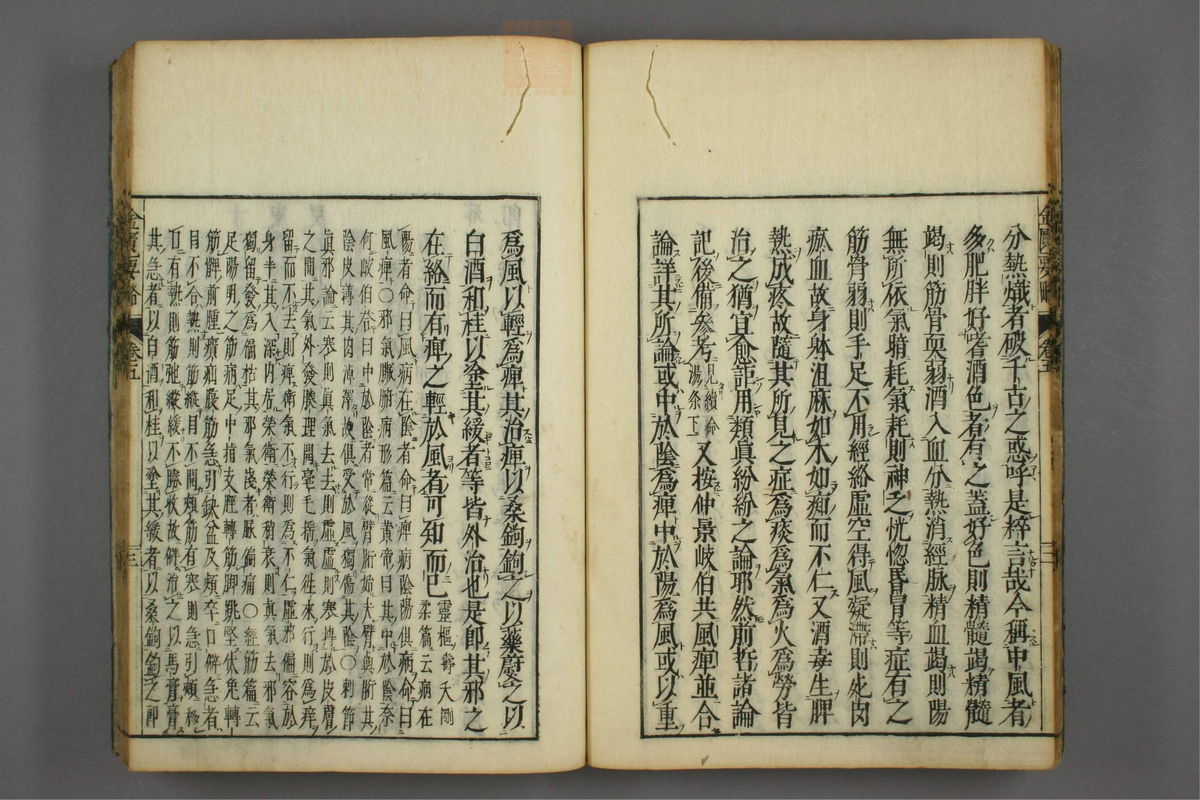 分熱熾者破千古之惑呼是粹言哉今稱中風者
多肥胖好嗜酒色者有之蓋好色則精髓竭精髓
竭則筋骨耎弱酒入血分熱消經脉精血竭則陽
無所依氣暗耗氣耗則神乏恍惚昏冒等症有之
筋骨弱則手足不用經絡虛空得風凝滯則死肉
瘀血故身躰沮麻如木如痴而不仁又酒毒生脾
熱成疼故隨其所見之症為痰為氣為火為勞皆
治之猶宜愈詎用類眞紛紛之論耶然前哲諸論
記後備參考見續命湯条下又按仲景岐伯共風痺並合
論詳其所論或中於陰為痺中於陽為風或以重
為風以輕為痺其治痺以桑鉤鉤之以藥熨之以
白酒和桂以塗其緩者等皆外治也是卽其邪之
在絡而有痺之輕於風者可知而已靈樞壽夭剛柔篇云病在
陽者命曰風病在陰者命曰痺病陰陽俱病命曰
風痺〇邪氣臟腑病形篇云黃帝曰其中於陰奈
何岐伯荅曰中於陰者常從臂胻始夫臂與胻其
陰皮薄其肉淖澤故俱受於風獨傷其陰〇刺節
眞邪論云寒則眞氣去去則虛虛則寒摶於皮膚
之間其氣外發腠理開毫毛搖氣往來行則為痒
留而不去則痺衛氣不行則為不仁虛邪偏容於
身半其入深內居榮衛榮衛稍衰則眞氣去邪氣
獨留發為偏枯其邪氣淺者脈偏痛〇經筋篇云
足陽明之筋病足中指支脛轉筋脚跳堅伏兔轉
筋髀前腫㿉疝腹筋急引缺盆及頰卒口僻急者
目不合熱則筋縱目不開頰筋有寒則急引頰移
口有熱則筋弛縱緩不勝收故僻治之以馬膏膏
其急者以白酒和桂以塗其緩者以桑鉤鉤之卽
金匱要略
卷五
三
金匱要略
卷五
二